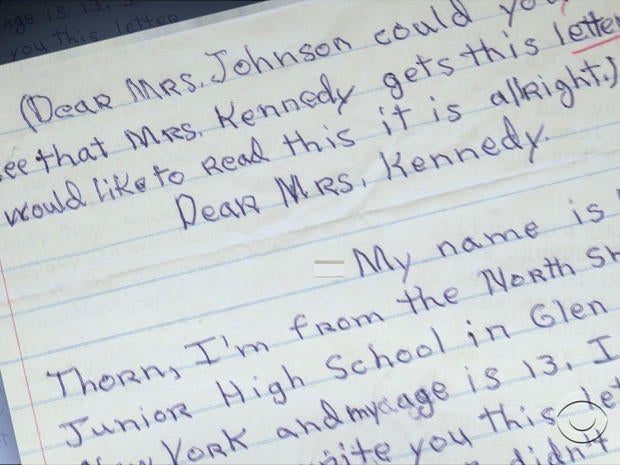 age is 13. I
you this letter
(Dear Mrs. Johnson could yo
ee that Mrs. Kennedy gets this letter
would like to Read this it is allRight.)
Dear Mrs. Kennedy.
My name is
Thorn, I'm from the North Sh
Junior High School in Glen
York and my age is 13. I
you this let
didn't